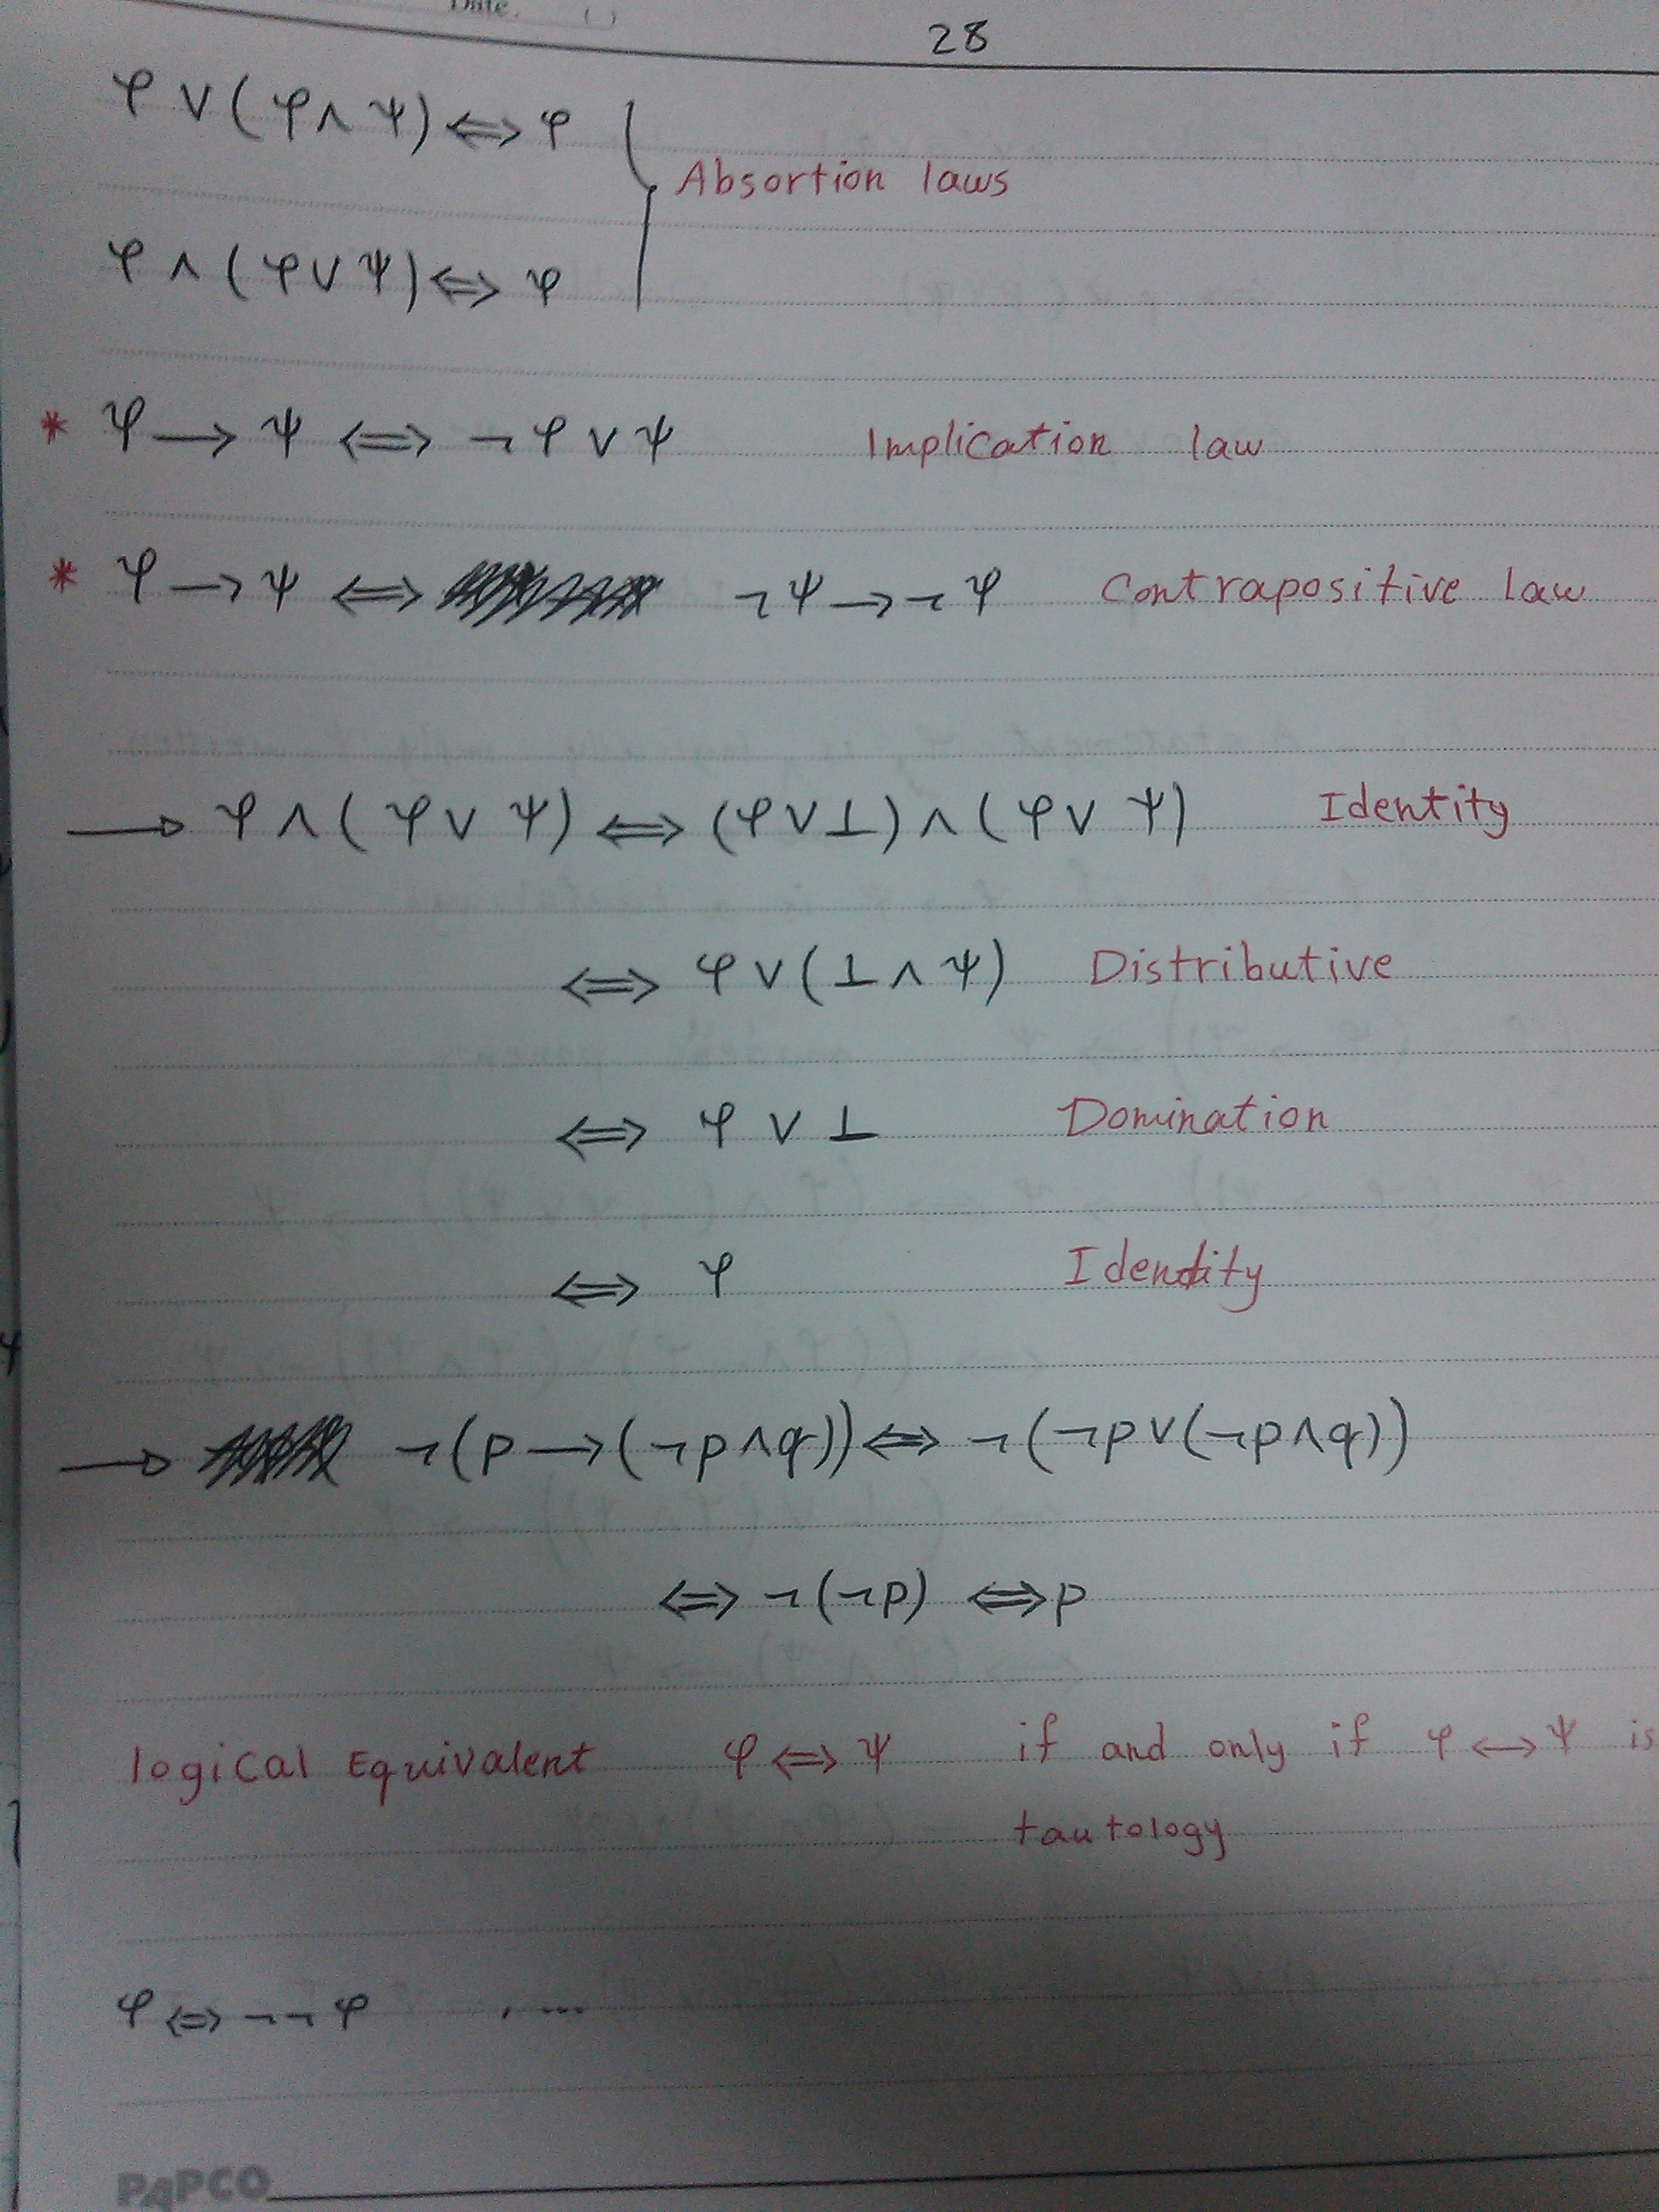 Date. ( )
28
φ ∨ (φ ∧ ψ) ⇔ φ
Absortion laws
φ ∧ (φ ∨ ψ) ⇔ φ
* φ → ψ ⇔ ¬φ ∨ ψ Implication law
* φ → ψ ⇔ ¬ψ → ¬φ Contrapositive law
→ φ ∧ (φ ∨ ψ) ⇔ (φ ∨ ⊥) ∧ (φ ∨ ψ) Identity
⇔ φ ∨ (⊥ ∧ ψ) Distributive
⇔ φ ∨ ⊥ Domination
⇔ φ Identity
→ ¬(p → (¬p ∧ q)) ⇔ ¬(¬p ∨ (¬p ∧ q))
⇔ ¬(¬p) ⇔ p
logical Equivalent φ ⇔ ψ if and only if φ ↔ ψ is
tautology
φ ⇔ ¬¬φ , ...
PAPCO